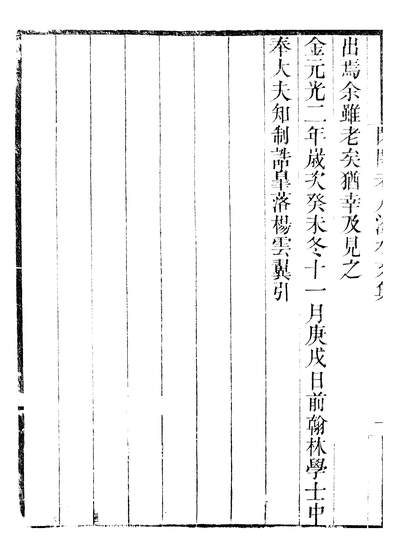 出焉余雖老矣猶幸及見之
金元光二年歲次癸未冬十一月庚戌日前翰林學士中
奉大夫知制誥皐落楊雲翼引